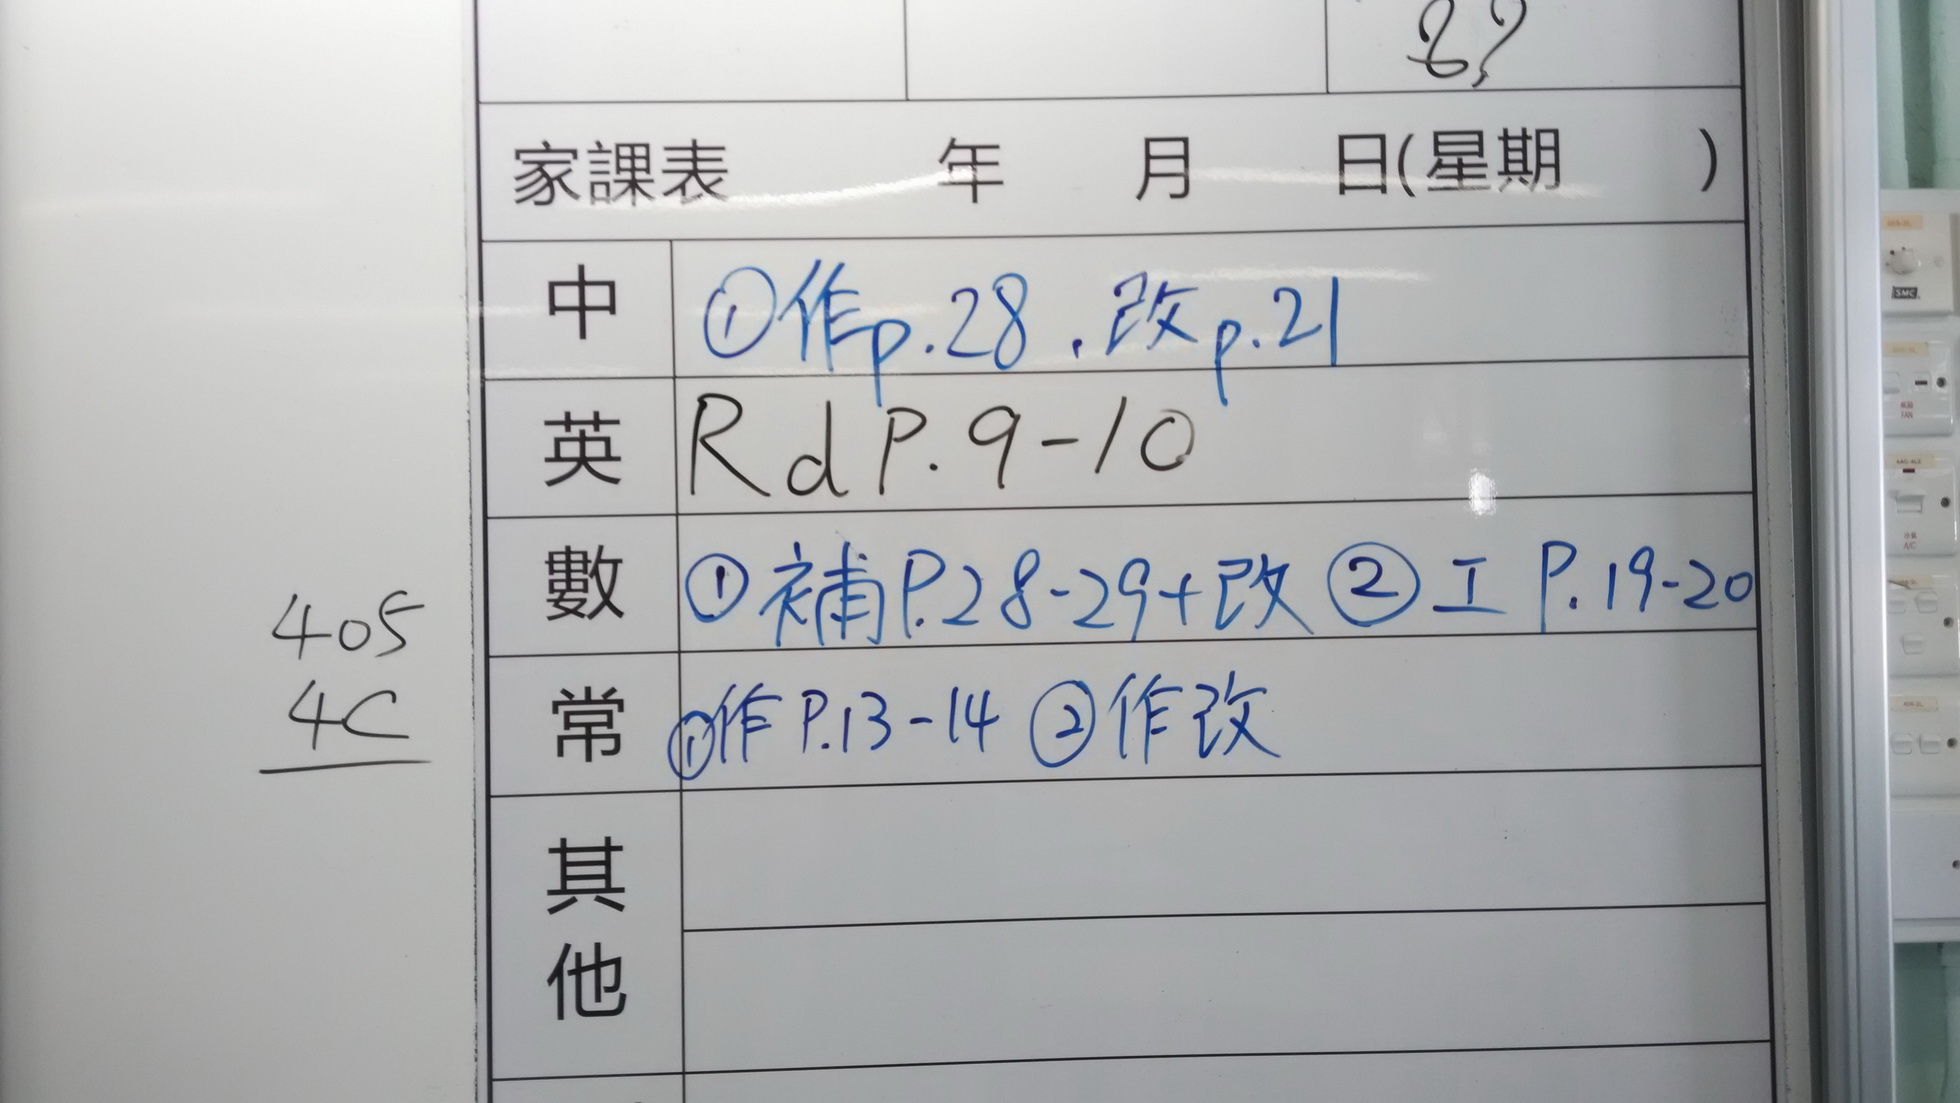 家課表 年 月 日(星期 )
中 ①作p.28 . 改p.21
英 Rd P.9-10
數 ①補P.28-29+改 ②工 P.19-20
常 ①作P.13-14 ②作改
其他
405
4C
SMC